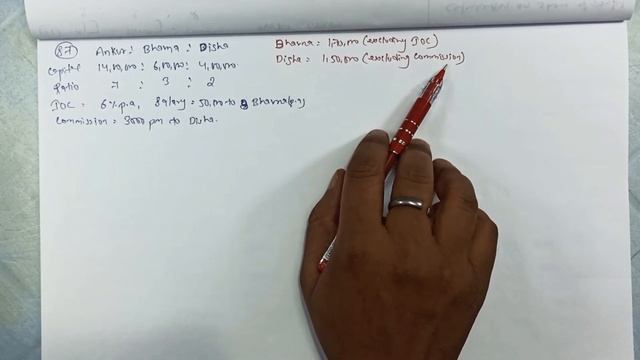 87 Ankur : Bhama : Disha
Capital 14,00,000 : 6,00,000 : 4,00,000
Ratio 7 : 3 : 2
IOC = 6% p.a, Salary = 50,000 to Bhama (p.a)
Commission = 3000 pm to Disha.
Bhama = 1,70,000 (excluding IOC)
Disha = 1,50,000 (excluding Commission)